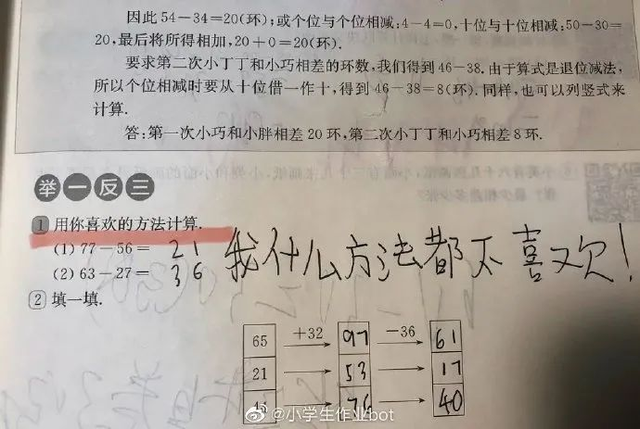 因此54-34=20(环);或个位与个位相减:4-4=0,十位与十位相减:50-30=
20,最后将所得相加,20+0=20(环).
要求第二次小丁丁和小巧相差的环数,我们得到46-38.由于算式是退位减法,
所以个位相减时要从十位借一作十,得到46-38=8(环).同样,也可以列竖式来
计算.
答:第一次小巧和小胖相差20环,第二次小丁丁和小巧相差8环.
举一反三
1 用你喜欢的方法计算.
(1) 77-56= 21 我什么方法都不喜欢!
(2) 63-27= 36
2 填一填.
65 +32 97 -36 61
21 53 17
76 40
@小学生作业bot